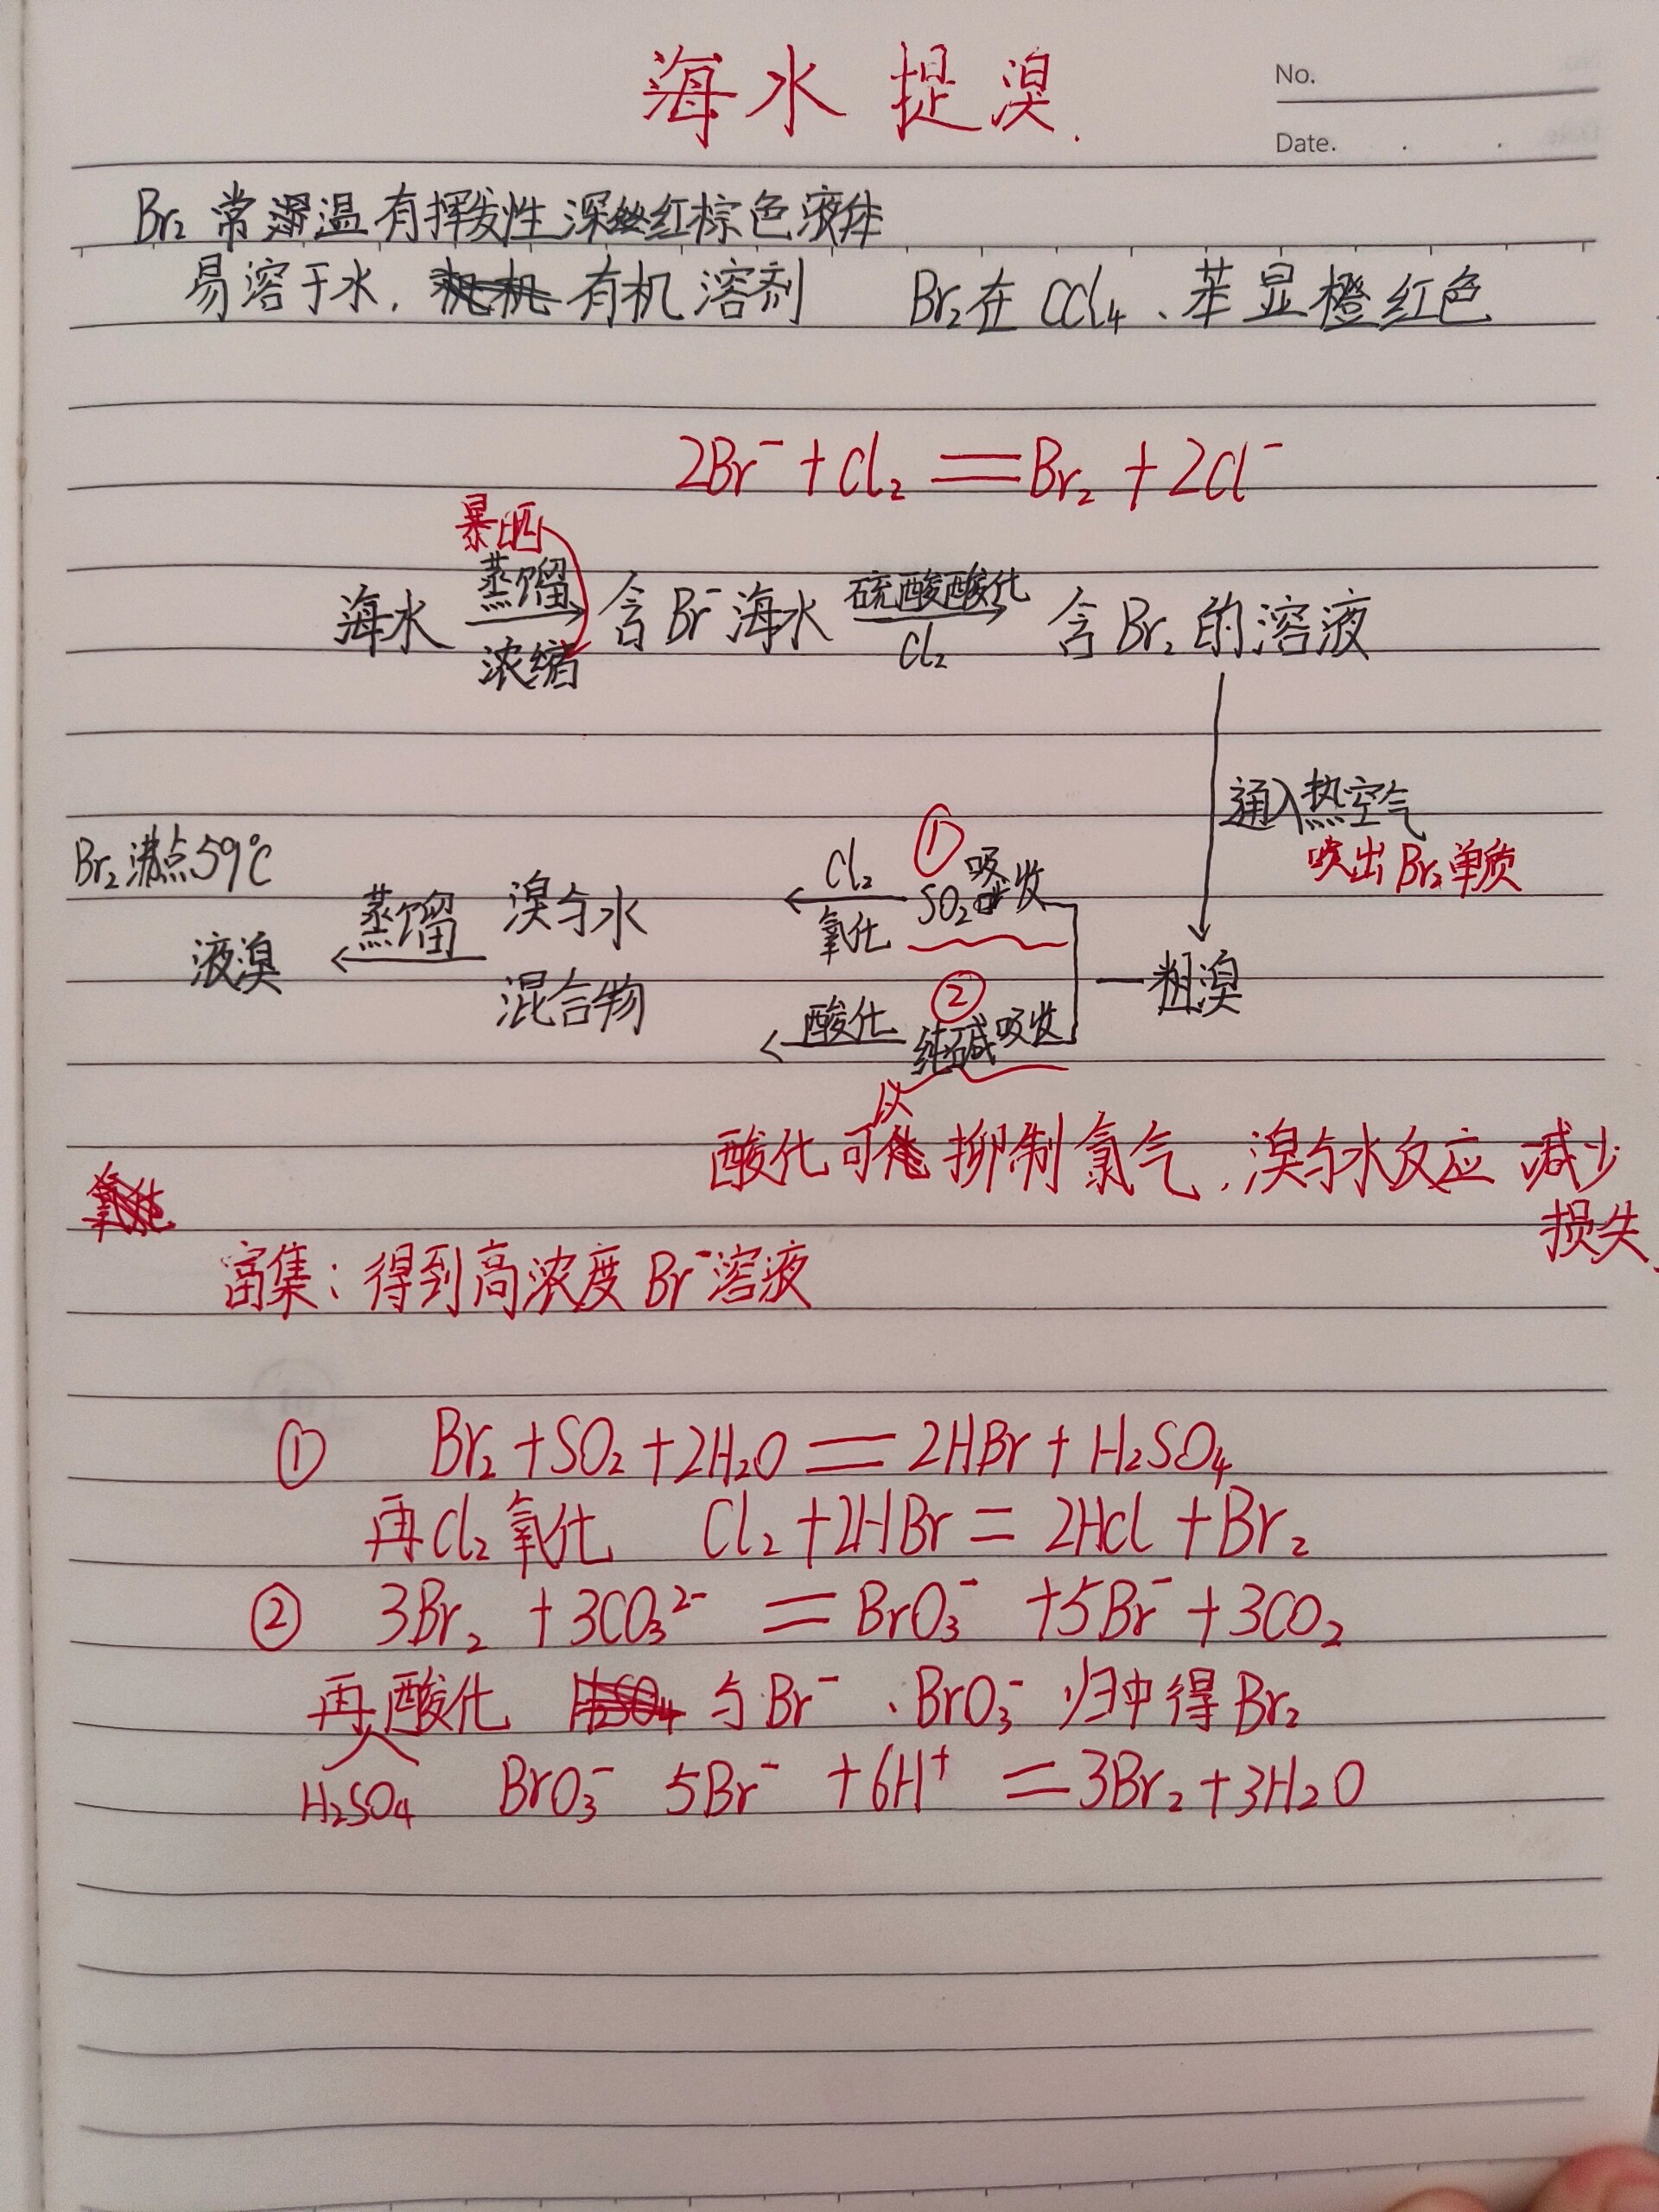 海水提溴.
No.
Date.
Br₂ 常温有挥发性 深红棕色液体
易溶于水, 有机溶剂 Br₂在 CCl₄、苯显橙红色
2Br⁻ + Cl₂ == Br₂ + 2Cl⁻
暴晒
蒸馏
浓缩
海水 → 含Br⁻海水
硫酸酸化
Cl₂
→ 含Br₂的溶液
通入热空气
吹出Br₂单质
粗溴
①
SO₂吸收
Cl₂
氧化
②
纯碱吸收
酸化
溴与水
混合物
蒸馏
Br₂沸点59℃
液溴
酸化可以抑制氯气,溴与水反应 减少
损失
富集:得到高浓度Br⁻溶液
① Br₂ + SO₂ + 2H₂O == 2HBr + H₂SO₄
再Cl₂氧化 Cl₂ + 2HBr = 2HCl + Br₂
② 3Br₂ + 3CO₃²⁻ == BrO₃⁻ + 5Br⁻ + 3CO₂
再酸化 与Br⁻、BrO₃⁻归中得Br₂
H₂SO₄ BrO₃⁻ 5Br⁻ + 6H⁺ == 3Br₂ + 3H₂O